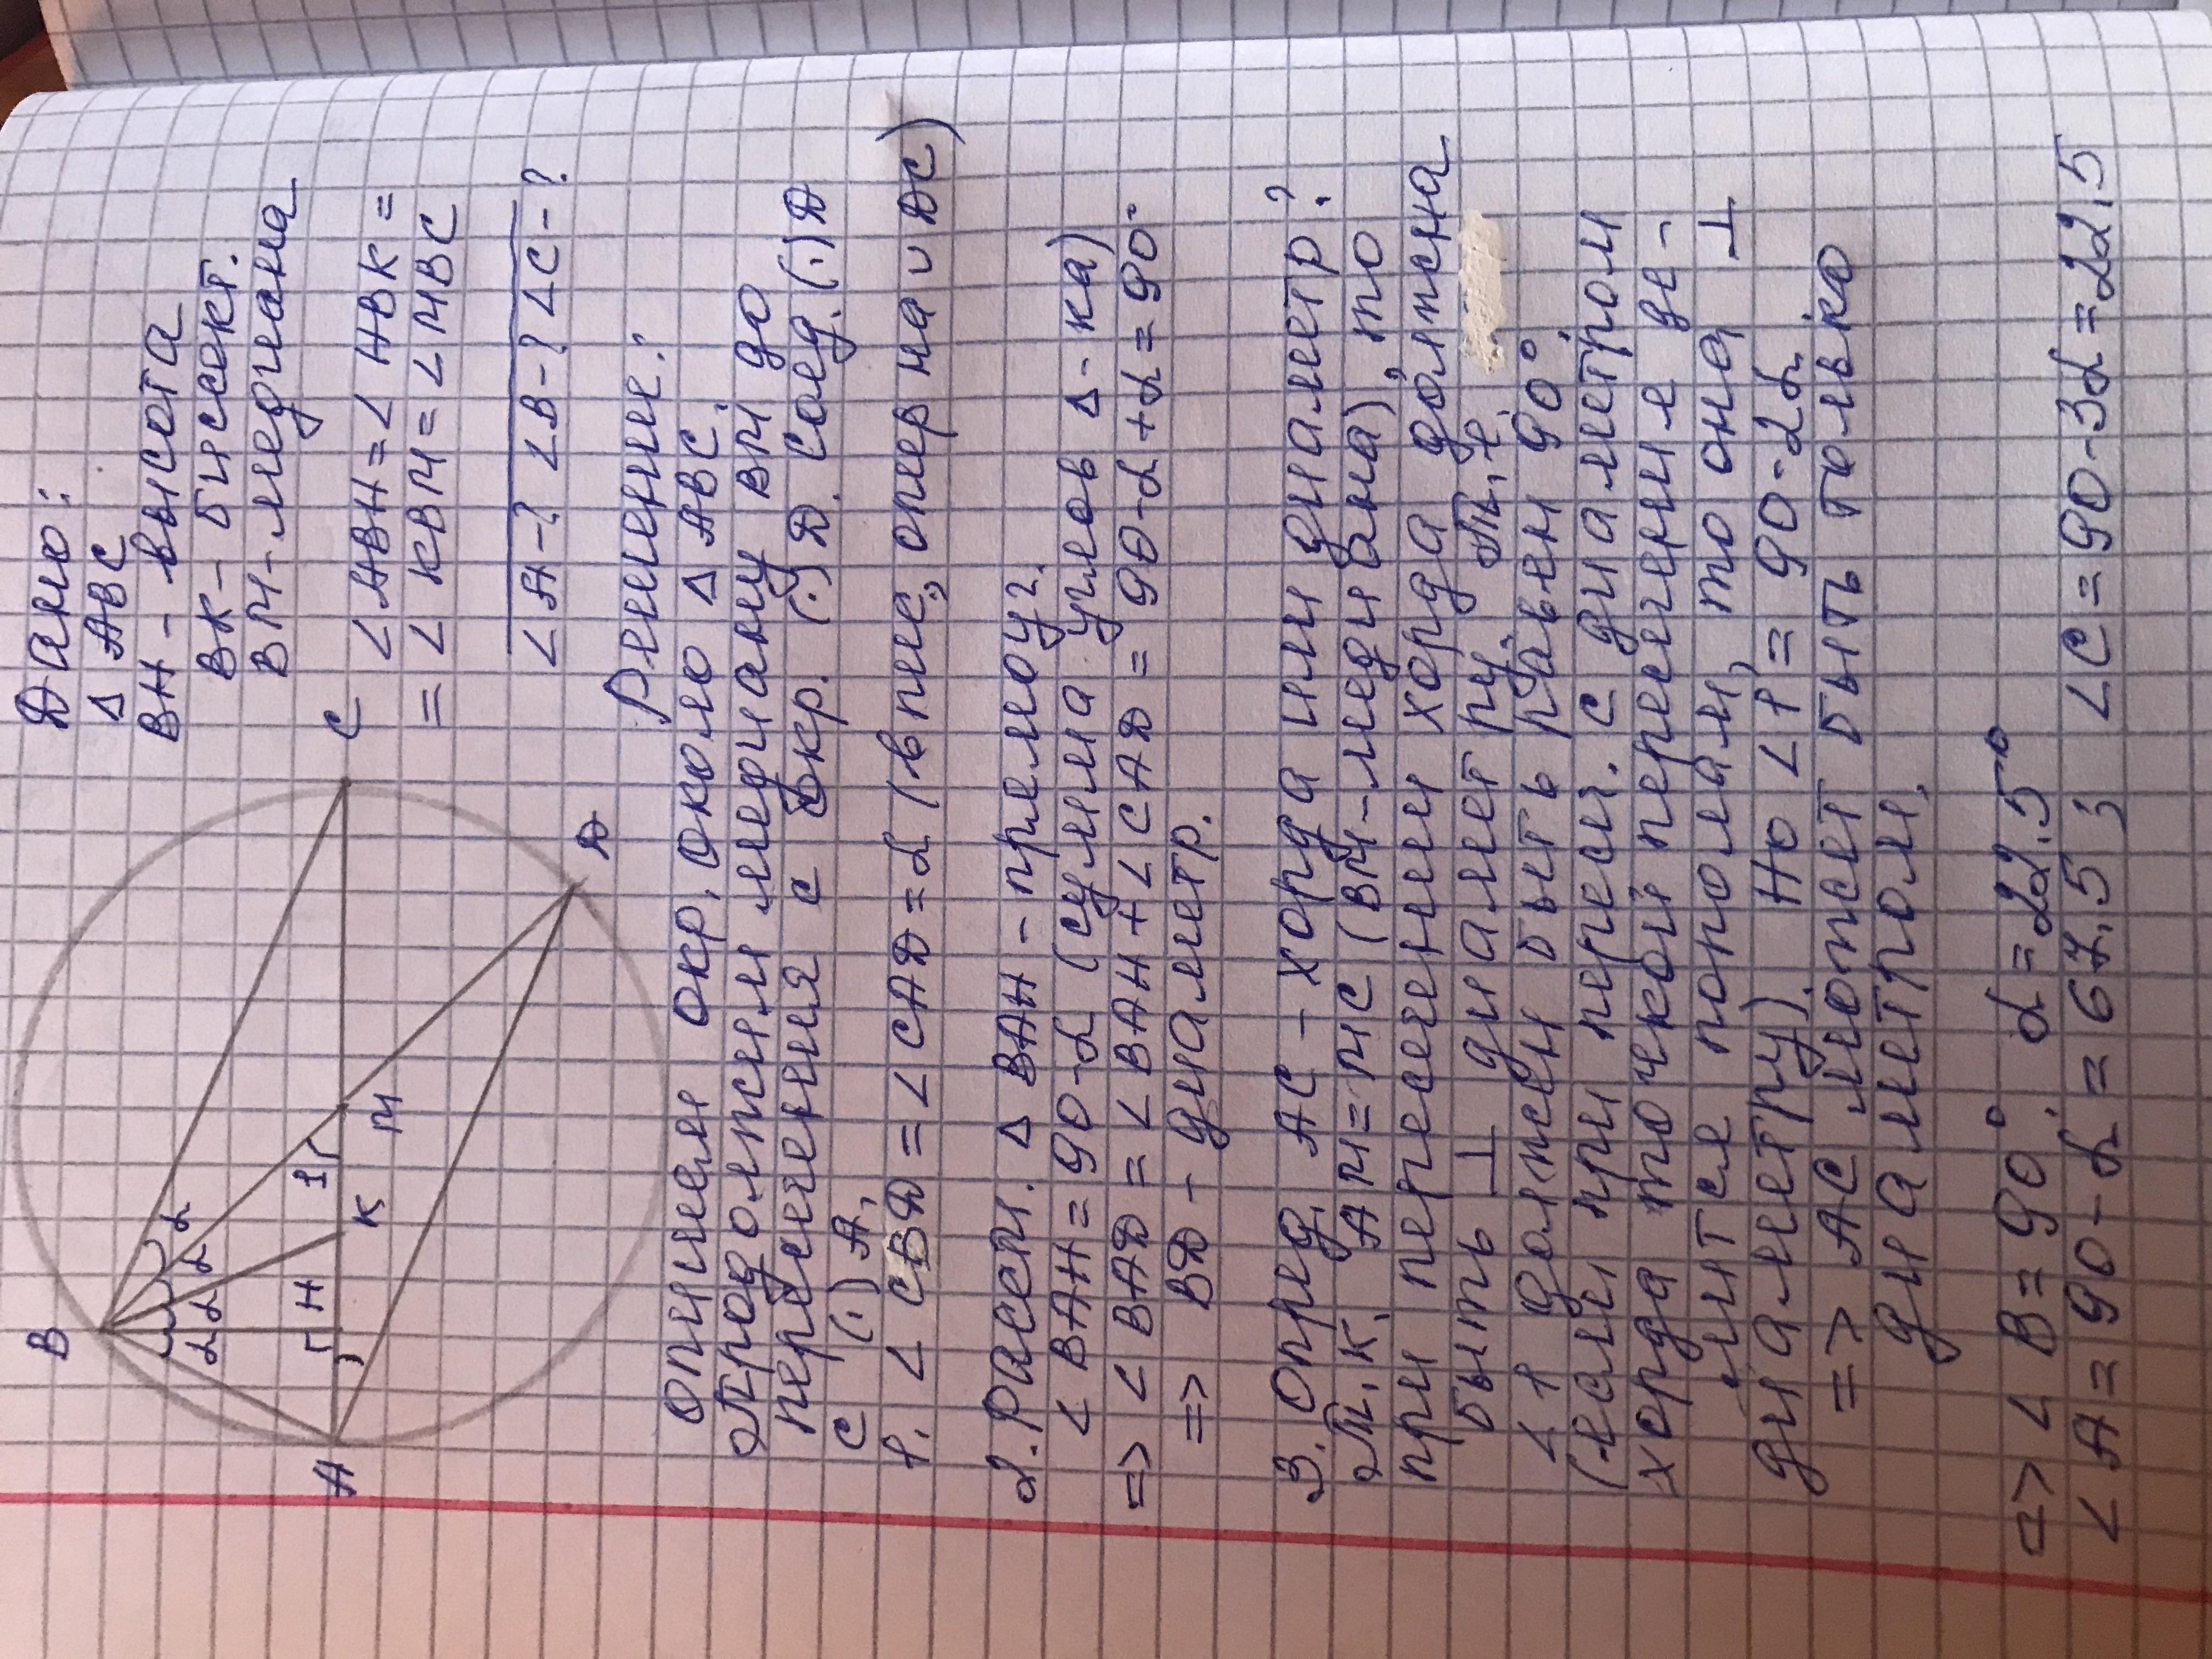 Дано:
Δ ABC
BH - высота
BK - бисект.
BM - медиана
∠ABH = ∠HBK =
= ∠KBM = ∠MBC
∠A-? ∠B-? ∠C-?
B
α α α α
Г H 1
A K M C
D
Решение:
Опишем окр. около Δ ABC.
Продолжим медиану BM до
пересечения с окр. (·) D. Соед. (·) D
с (·) A.
1. ∠CBD = ∠CAD = α (впис, опер на ∪ DC)
2. Рассм. Δ BAH - прямоуг.
∠BAH = 90-α (сумма углов Δ-ка)
=> ∠BAD = ∠BAH + ∠CAD = 90-α+α = 90°
=> BD - диаметр.
3. Опред. AC - хорда или диаметр?
Т.к. AM = MC (BM - медиана), то
при пересечении хорда должна
быть ⊥ диаметру. Т.е
∠1 должен быть равен 90°.
(если при перес. с диаметром
хорда точкой пересечения де-
лится пополам, то она ⊥
диаметру). Но ∠1 = 90-2α.
=> AC может быть только
диаметром.
=> ∠B = 90°. α = 22.5°
∠A = 90-α = 67.5 ; ∠C = 90-3α = 22.5